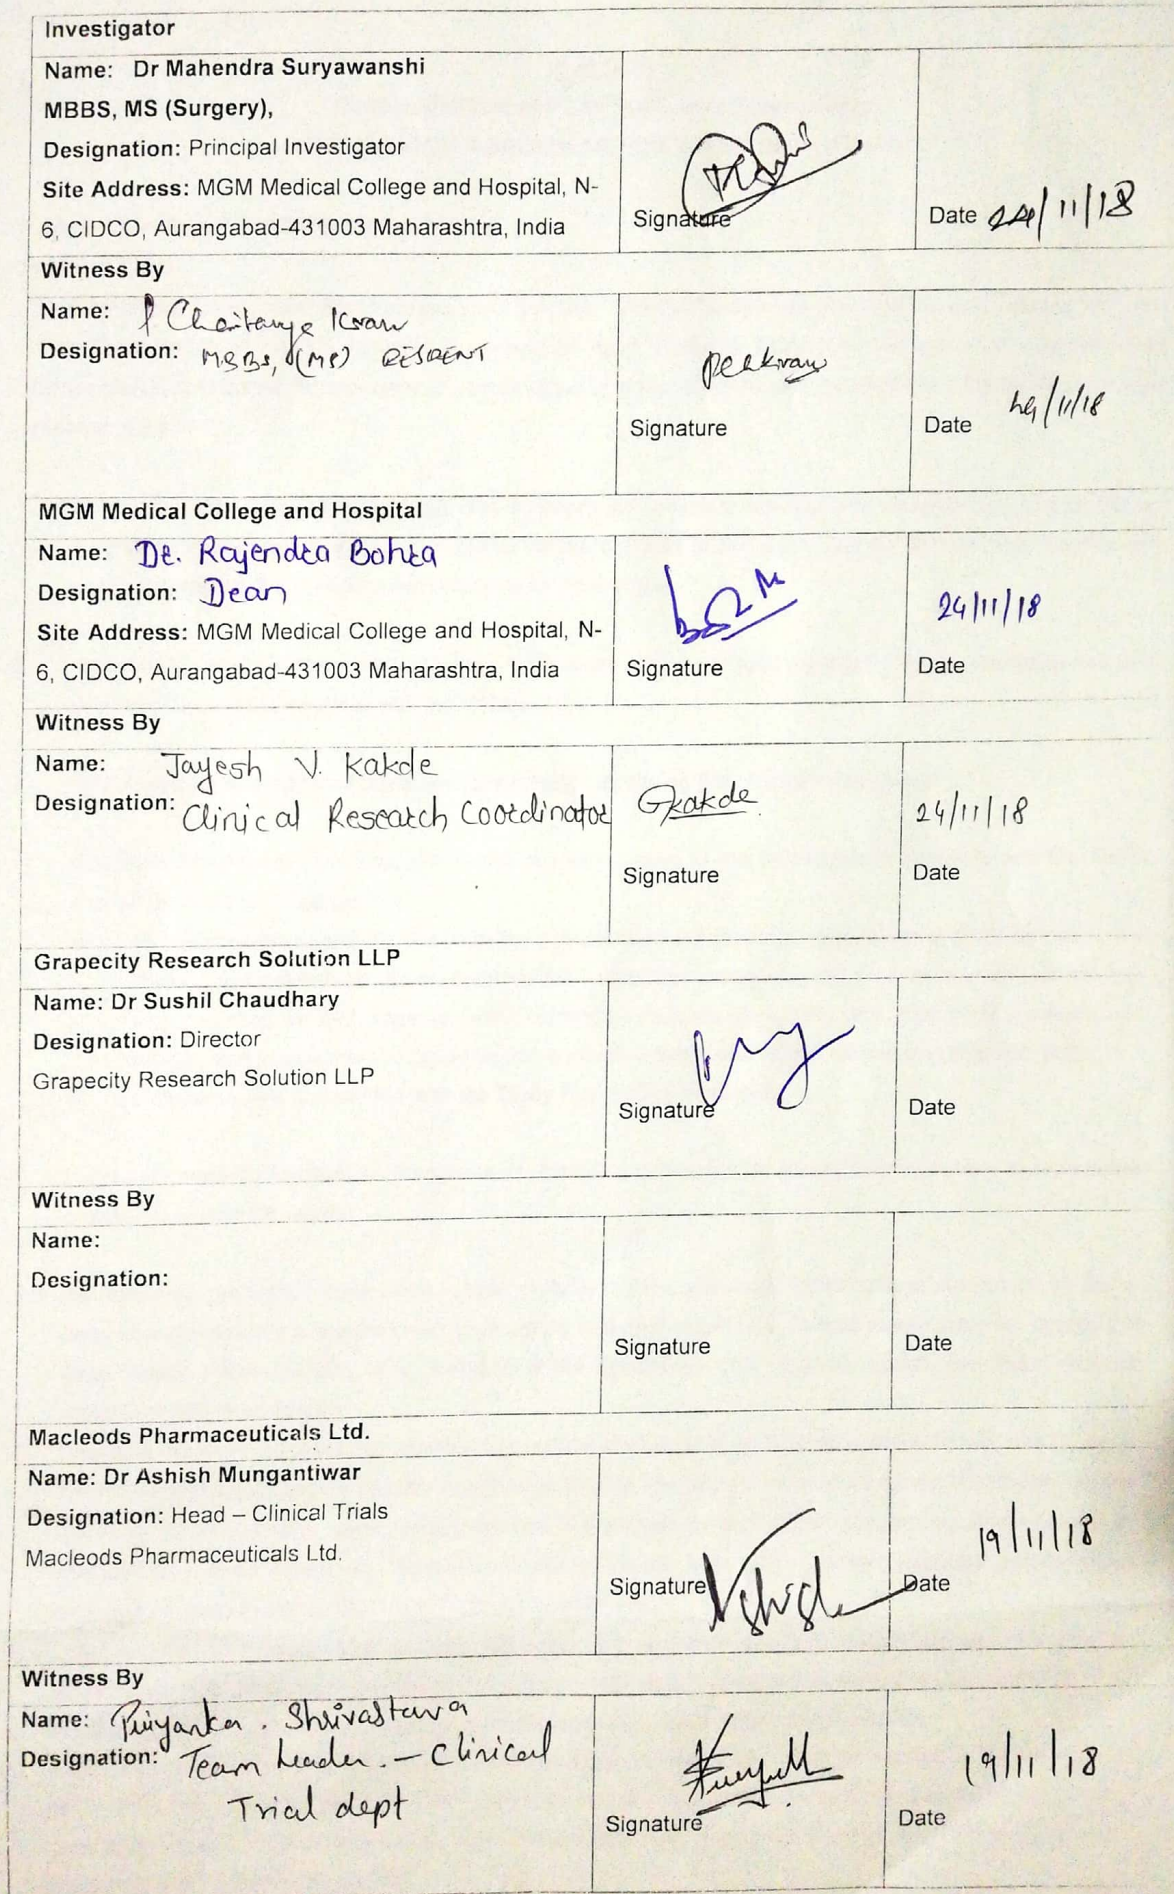 Investigator
Name: Dr Mahendra Suryawanshi
MBBS, MS (Surgery),
Designation: Principal Investigator
Site Address: MGM Medical College and Hospital, N-
6, CIDCO, Aurangabad-431003 Maharashtra, India
Signature
Date 24/11/18
Witness By
Name: P Chaitanya Kiran
Designation: MBBS, (MS) RESIDENT
Signature
Date 24/11/18
MGM Medical College and Hospital
Name: Dr. Rajendra Bohra
Designation: Dean
Site Address: MGM Medical College and Hospital, N-
6, CIDCO, Aurangabad-431003 Maharashtra, India
Signature
24/11/18
Date
Witness By
Name: Jayesh V. Kakde
Designation: Clinical Research Coordinator
Kakde
Signature
24/11/18
Date
Grapecity Research Solution LLP
Name: Dr Sushil Chaudhary
Designation: Director
Grapecity Research Solution LLP
Signature
Date
Witness By
Name:
Designation:
Signature
Date
Macleods Pharmaceuticals Ltd.
Name: Dr Ashish Mungantiwar
Designation: Head – Clinical Trials
Macleods Pharmaceuticals Ltd.
Signature
19/11/18
Date
Witness By
Name: Priyanka. Shrivastava
Designation: Team Leader. – Clinical
Trial dept
Signature
19/11/18
Date